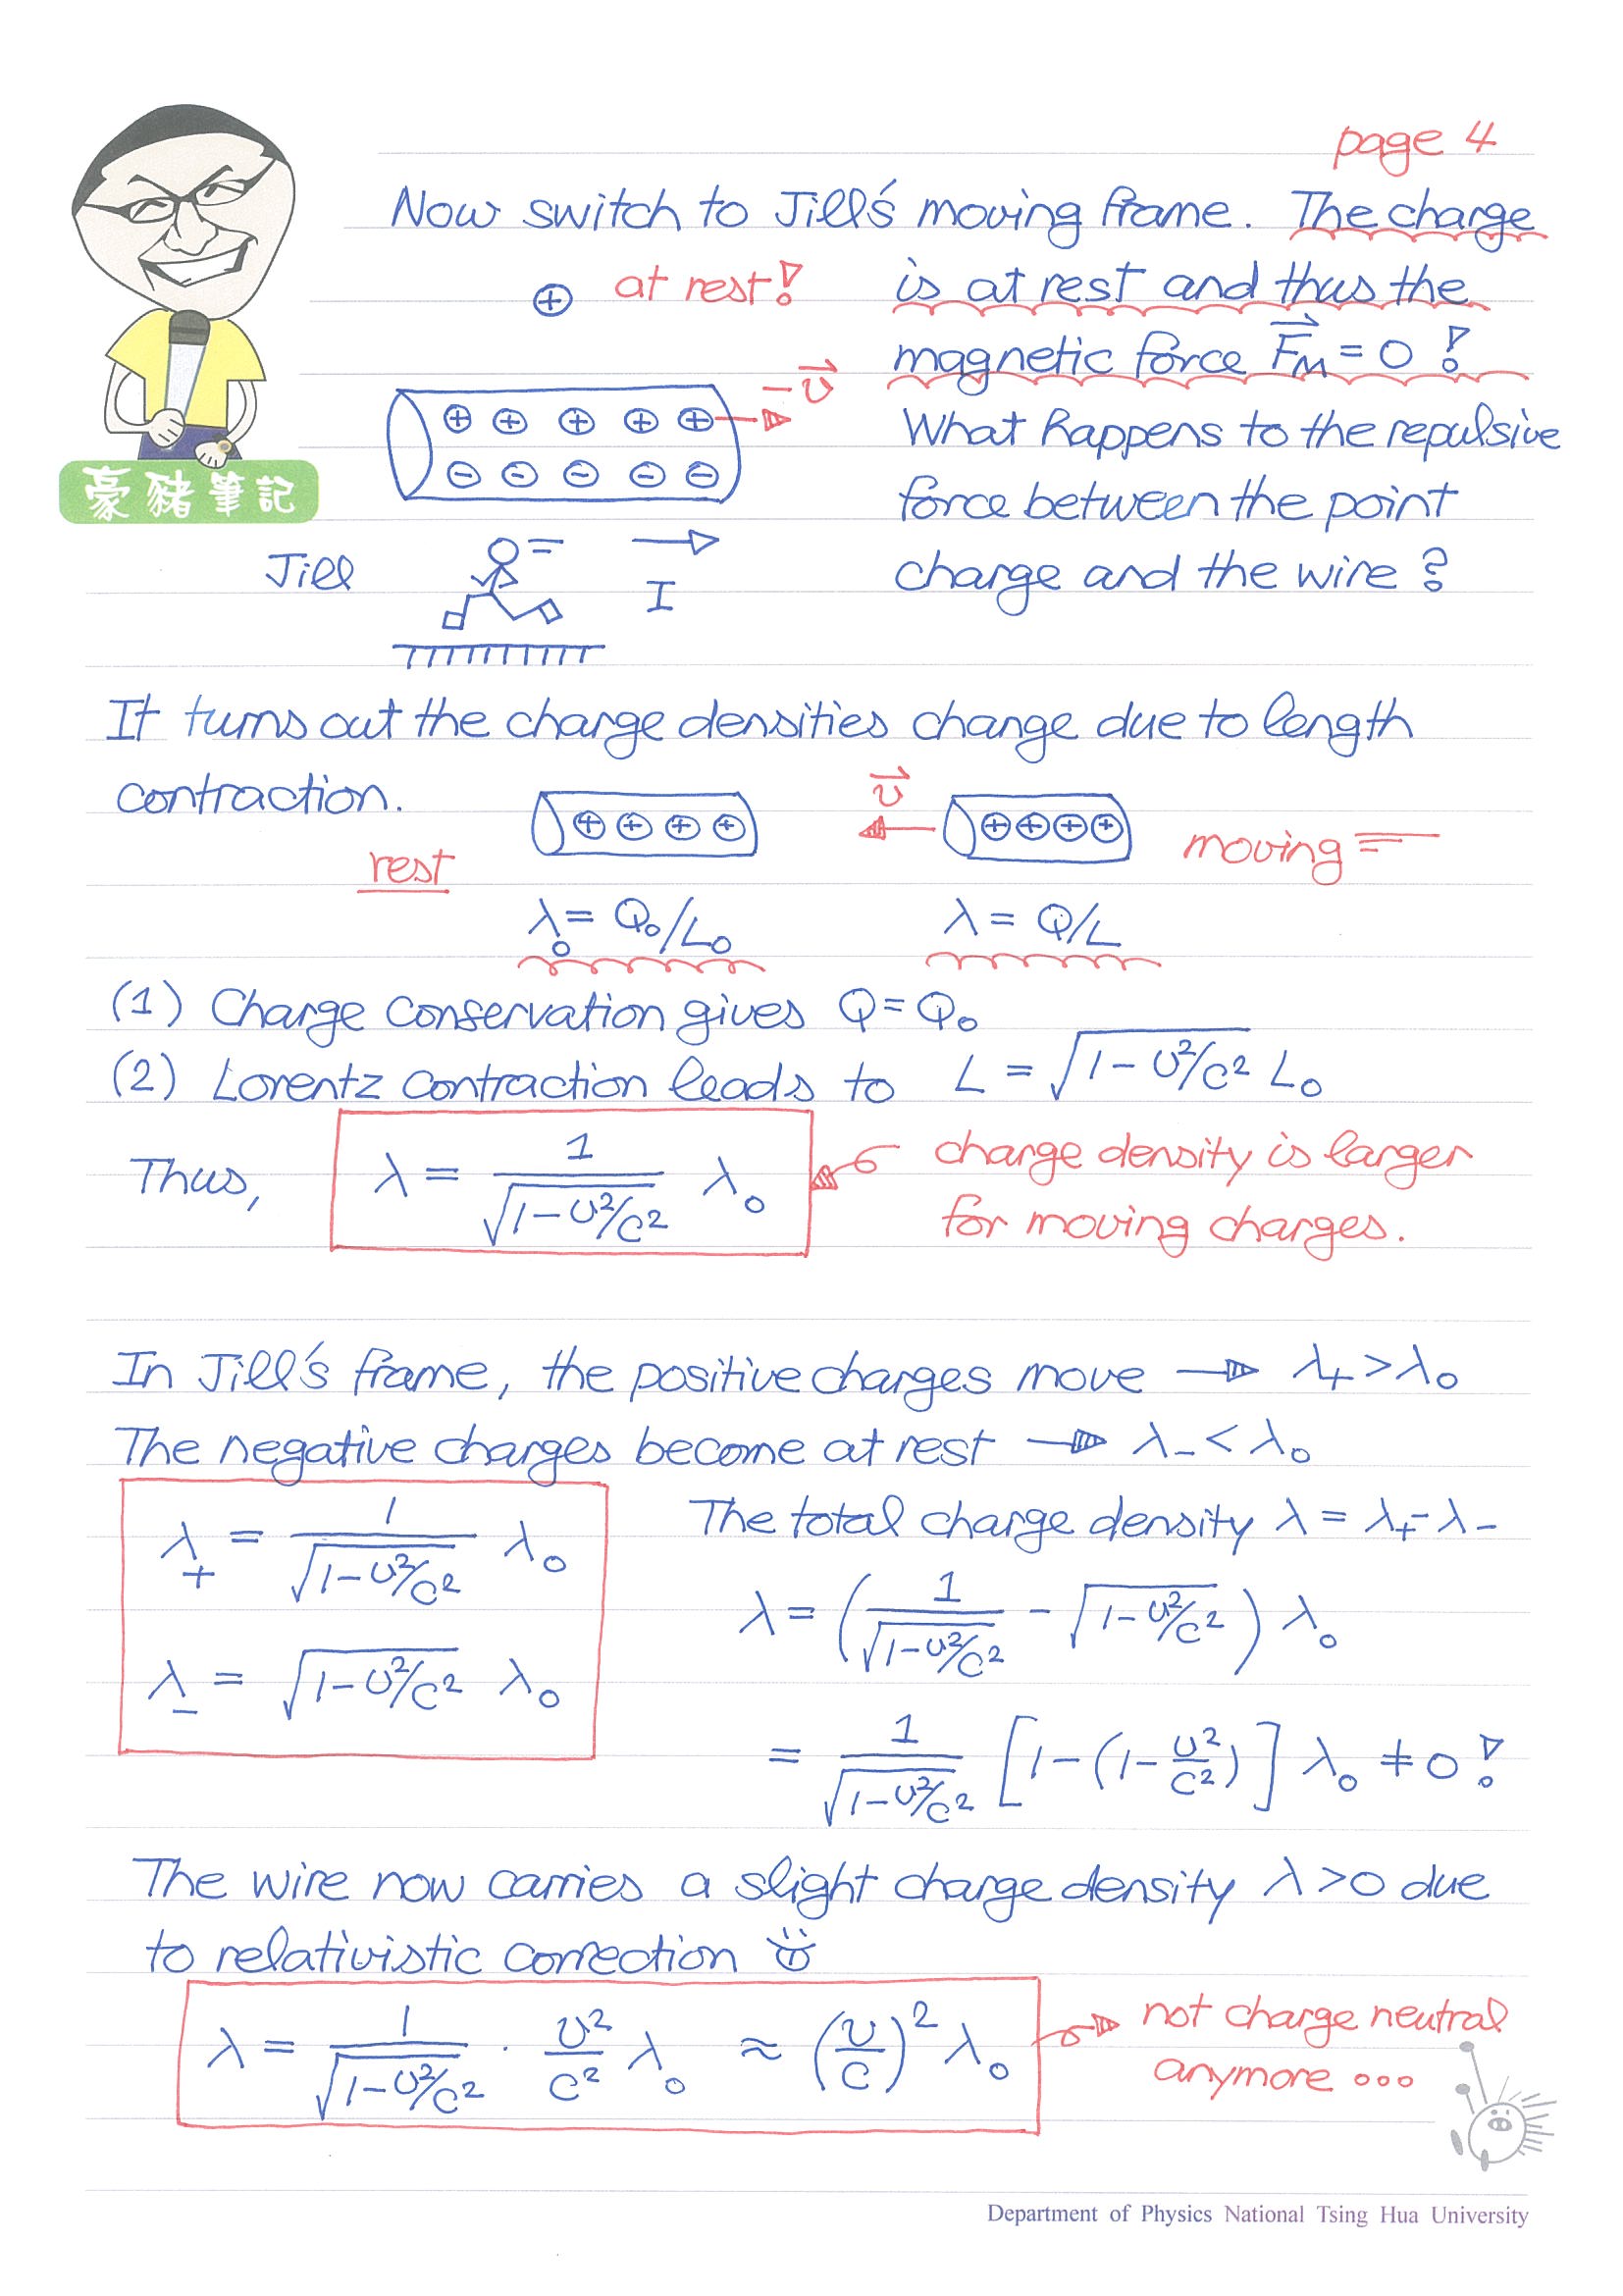 page 4
Now switch to Jill's moving frame. The charge
⊕ at rest! is at rest and thus the
magnetic force F⃗_M = 0 !
-v⃗
⊕ ⊕ ⊕ ⊕ ⊕
⊖ ⊖ ⊖ ⊖ ⊖
What happens to the repulsive
force between the point
charge and the wire ?
豪豬筆記
Jill
I
It turns out the charge densities change due to length
contraction.
rest
⊕ ⊕ ⊕ ⊕
v⃗
⊕ ⊕ ⊕ ⊕
moving
λ₀ = Q₀/L₀
λ = Q/L
(1) Charge conservation gives Q = Q₀
(2) Lorentz contraction leads to L = √(1-v²/c²) L₀
Thus, λ = 1/√(1-v²/c²) λ₀
charge density is larger
for moving charges.
In Jill's frame, the positive charges move → λ₊ > λ₀
The negative charges become at rest → λ₋ < λ₀
λ₊ = 1/√(1-v²/c²) λ₀
λ₋ = √(1-v²/c²) λ₀
The total charge density λ = λ₊ - λ₋
λ = (1/√(1-v²/c²) - √(1-v²/c²)) λ₀
= 1/√(1-v²/c²) [1-(1-v²/c²)] λ₀ ≠ 0 !
The wire now carries a slight charge density λ > 0 due
to relativistic correction
λ = 1/√(1-v²/c²) · v²/c² λ₀ ≈ (v/c)² λ₀
not charge neutral
anymore ...
Department of Physics National Tsing Hua University